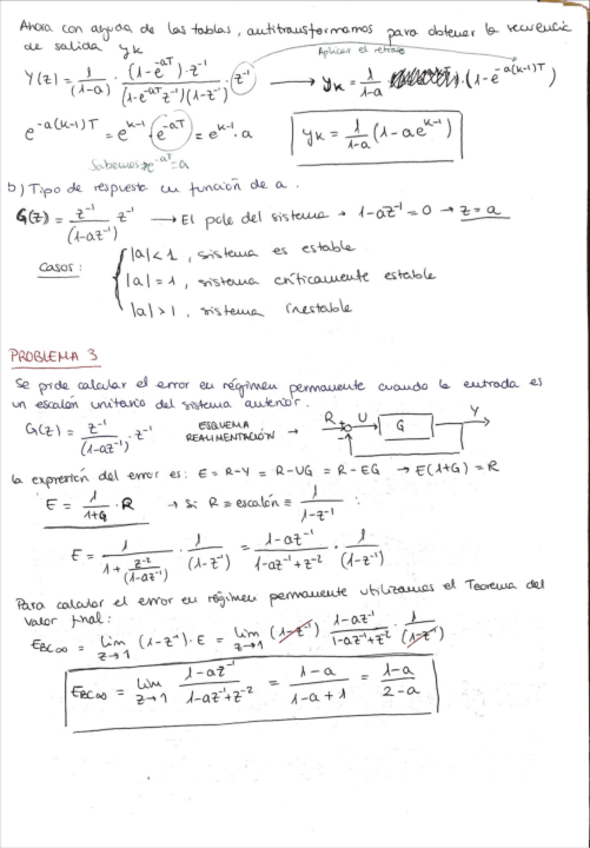 Ahora con ayuda de las tablas, antitransformamos para obtener la secuencia
de salida yk
Aplicar el retraso
Y(z) = 1/(1-a) · (1-e^-aT)·z^-1 / (1-e^-aT z^-1)(1-z^-1) · z^-1 → yk = 1/(1-a) · (1-e^-a(k-1)T)
e^-a(k-1)T = e^k-1 · e^-aT = e^k-1 · a
yk = 1/(1-a) (1-ae^k-1)
Sabemos e^-aT = a
b) Tipo de respuesta en función de a.
G(z) = z^-1/(1-az^-1) z^-1 → El polo del sistema → 1-az^-1 = 0 → z = a
Casos: { |a| < 1, sistema es estable
|a| = 1, sistema críticamente estable
|a| > 1, sistema inestable
PROBLEMA 3
Se pide calcular el error en régimen permanente cuando la entrada es
un escalón unitario del sistema anterior.
G(z) = z^-1/(1-az^-1) · z^-1 ESQUEMA REALIMENTACIÓN → R U G Y -1
la expresión del error es: E = R-Y = R-UG = R-EG → E(1+G) = R
E = 1/(1+G) · R → Si R = escalón = 1/(1-z^-1) :
E = 1/(1 + z^-2/(1-az^-1)) · 1/(1-z^-1) = (1-az^-1)/(1-az^-1+z^-2) · 1/(1-z^-1)
Para calcular el error en régimen permanente utilizamos el Teorema del
valor final:
EBC∞ = lim z→1 (1-z^-1)·E = lim z→1 (1-z^-1) (1-az^-1)/(1-az^-1+z^-2) · 1/(1-z^-1)
EBC∞ = lim z→1 (1-az^-1)/(1-az^-1+z^-2) = (1-a)/(1-a+1) = (1-a)/(2-a)